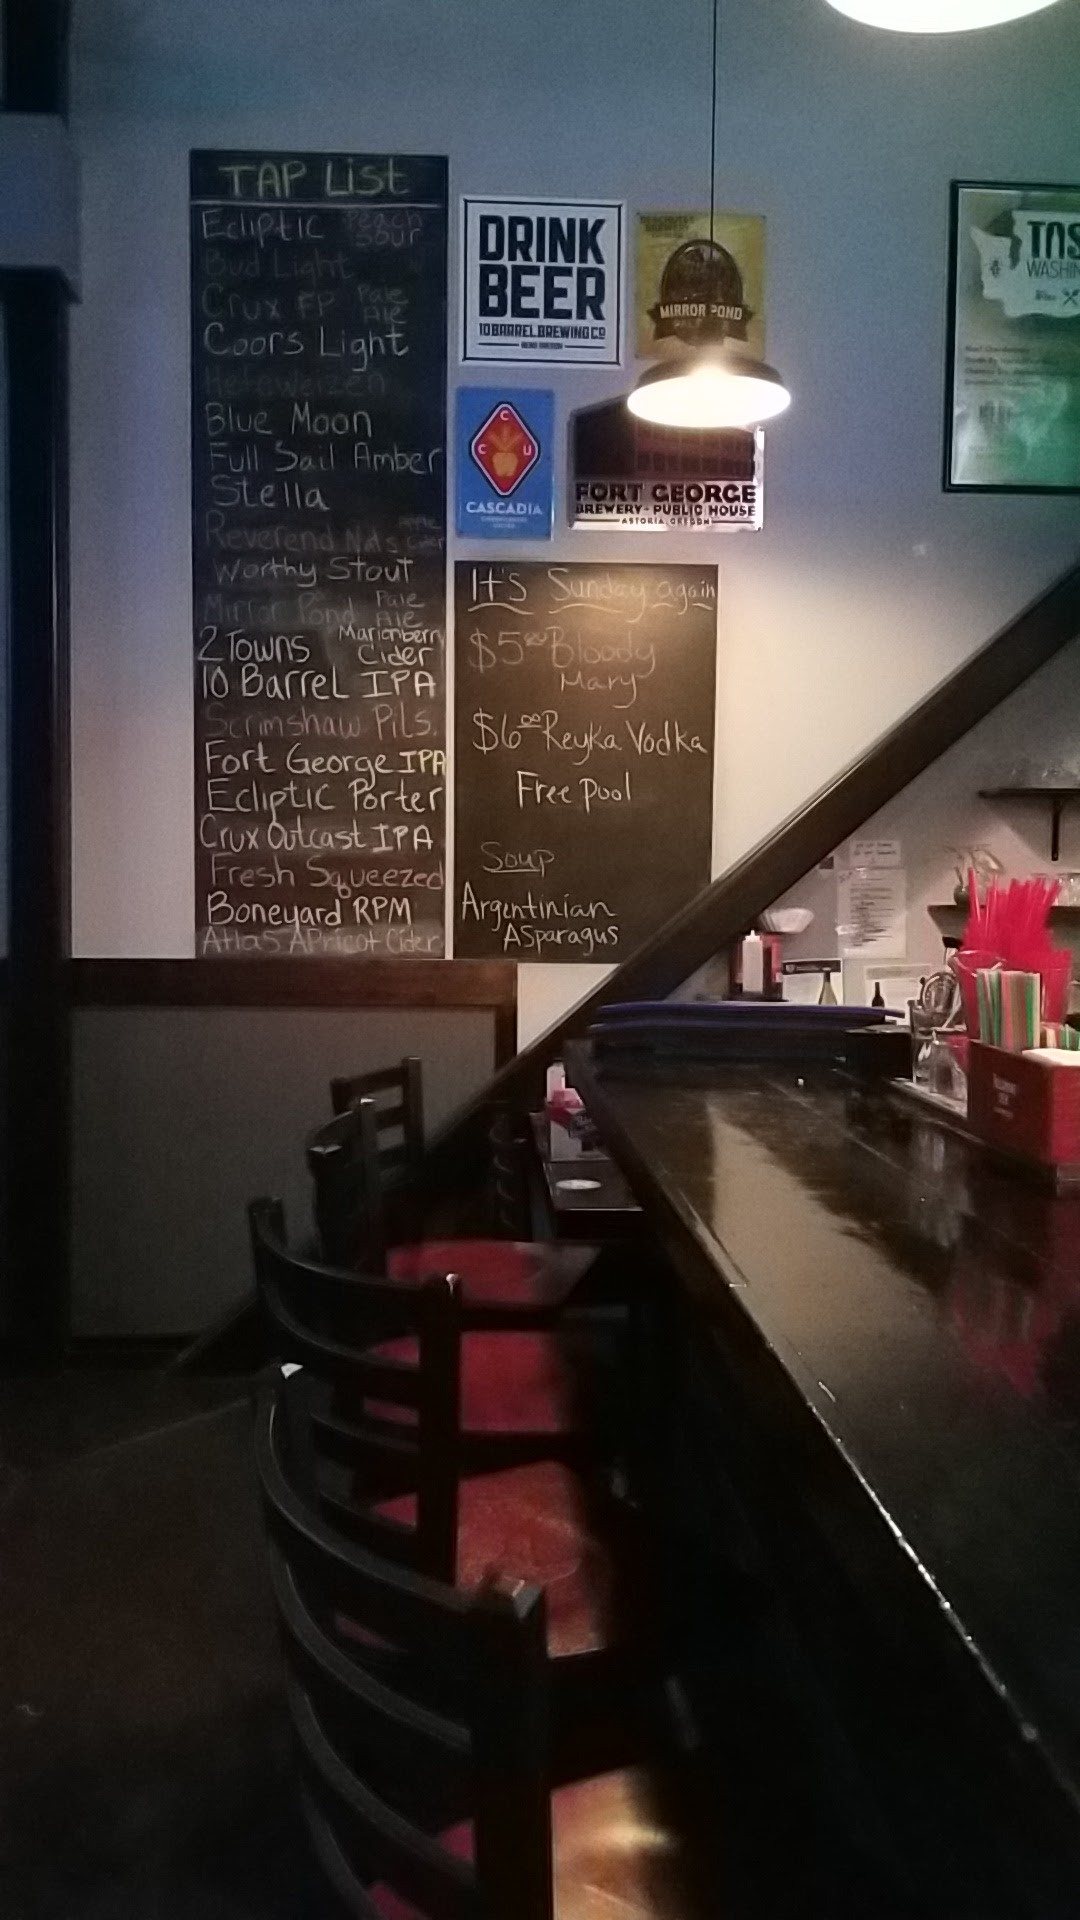 TAP List
Ecliptic Peach Sour
Bud Light
Crux FP Pale Ale
Coors Light
Hefeweizen
Blue Moon
Full Sail Amber
Stella
Reverend Nat's Apple Cider
Worthy Stout
Mirror Pond Pale Ale
2 Towns Marionberry Cider
10 Barrel IPA
Scrimshaw Pils.
Fort George IPA
Ecliptic Porter
Crux Outcast IPA
Fresh Squeezed
Boneyard RPM
Atlas Apricot Cider
DRINK
BEER
10 BARREL BREWING CO
BEND OREGON
MIRROR POND
PALE ALE
C
C U
CASCADIA
FORT GEORGE
BREWERY + PUBLIC HOUSE
ASTORIA, OREGON
It's Sunday again
$5.00 Bloody
Mary
$6.00 Reyka Vodka
Free Pool
Soup
Argentinian
Asparagus
TAS
WASHIN